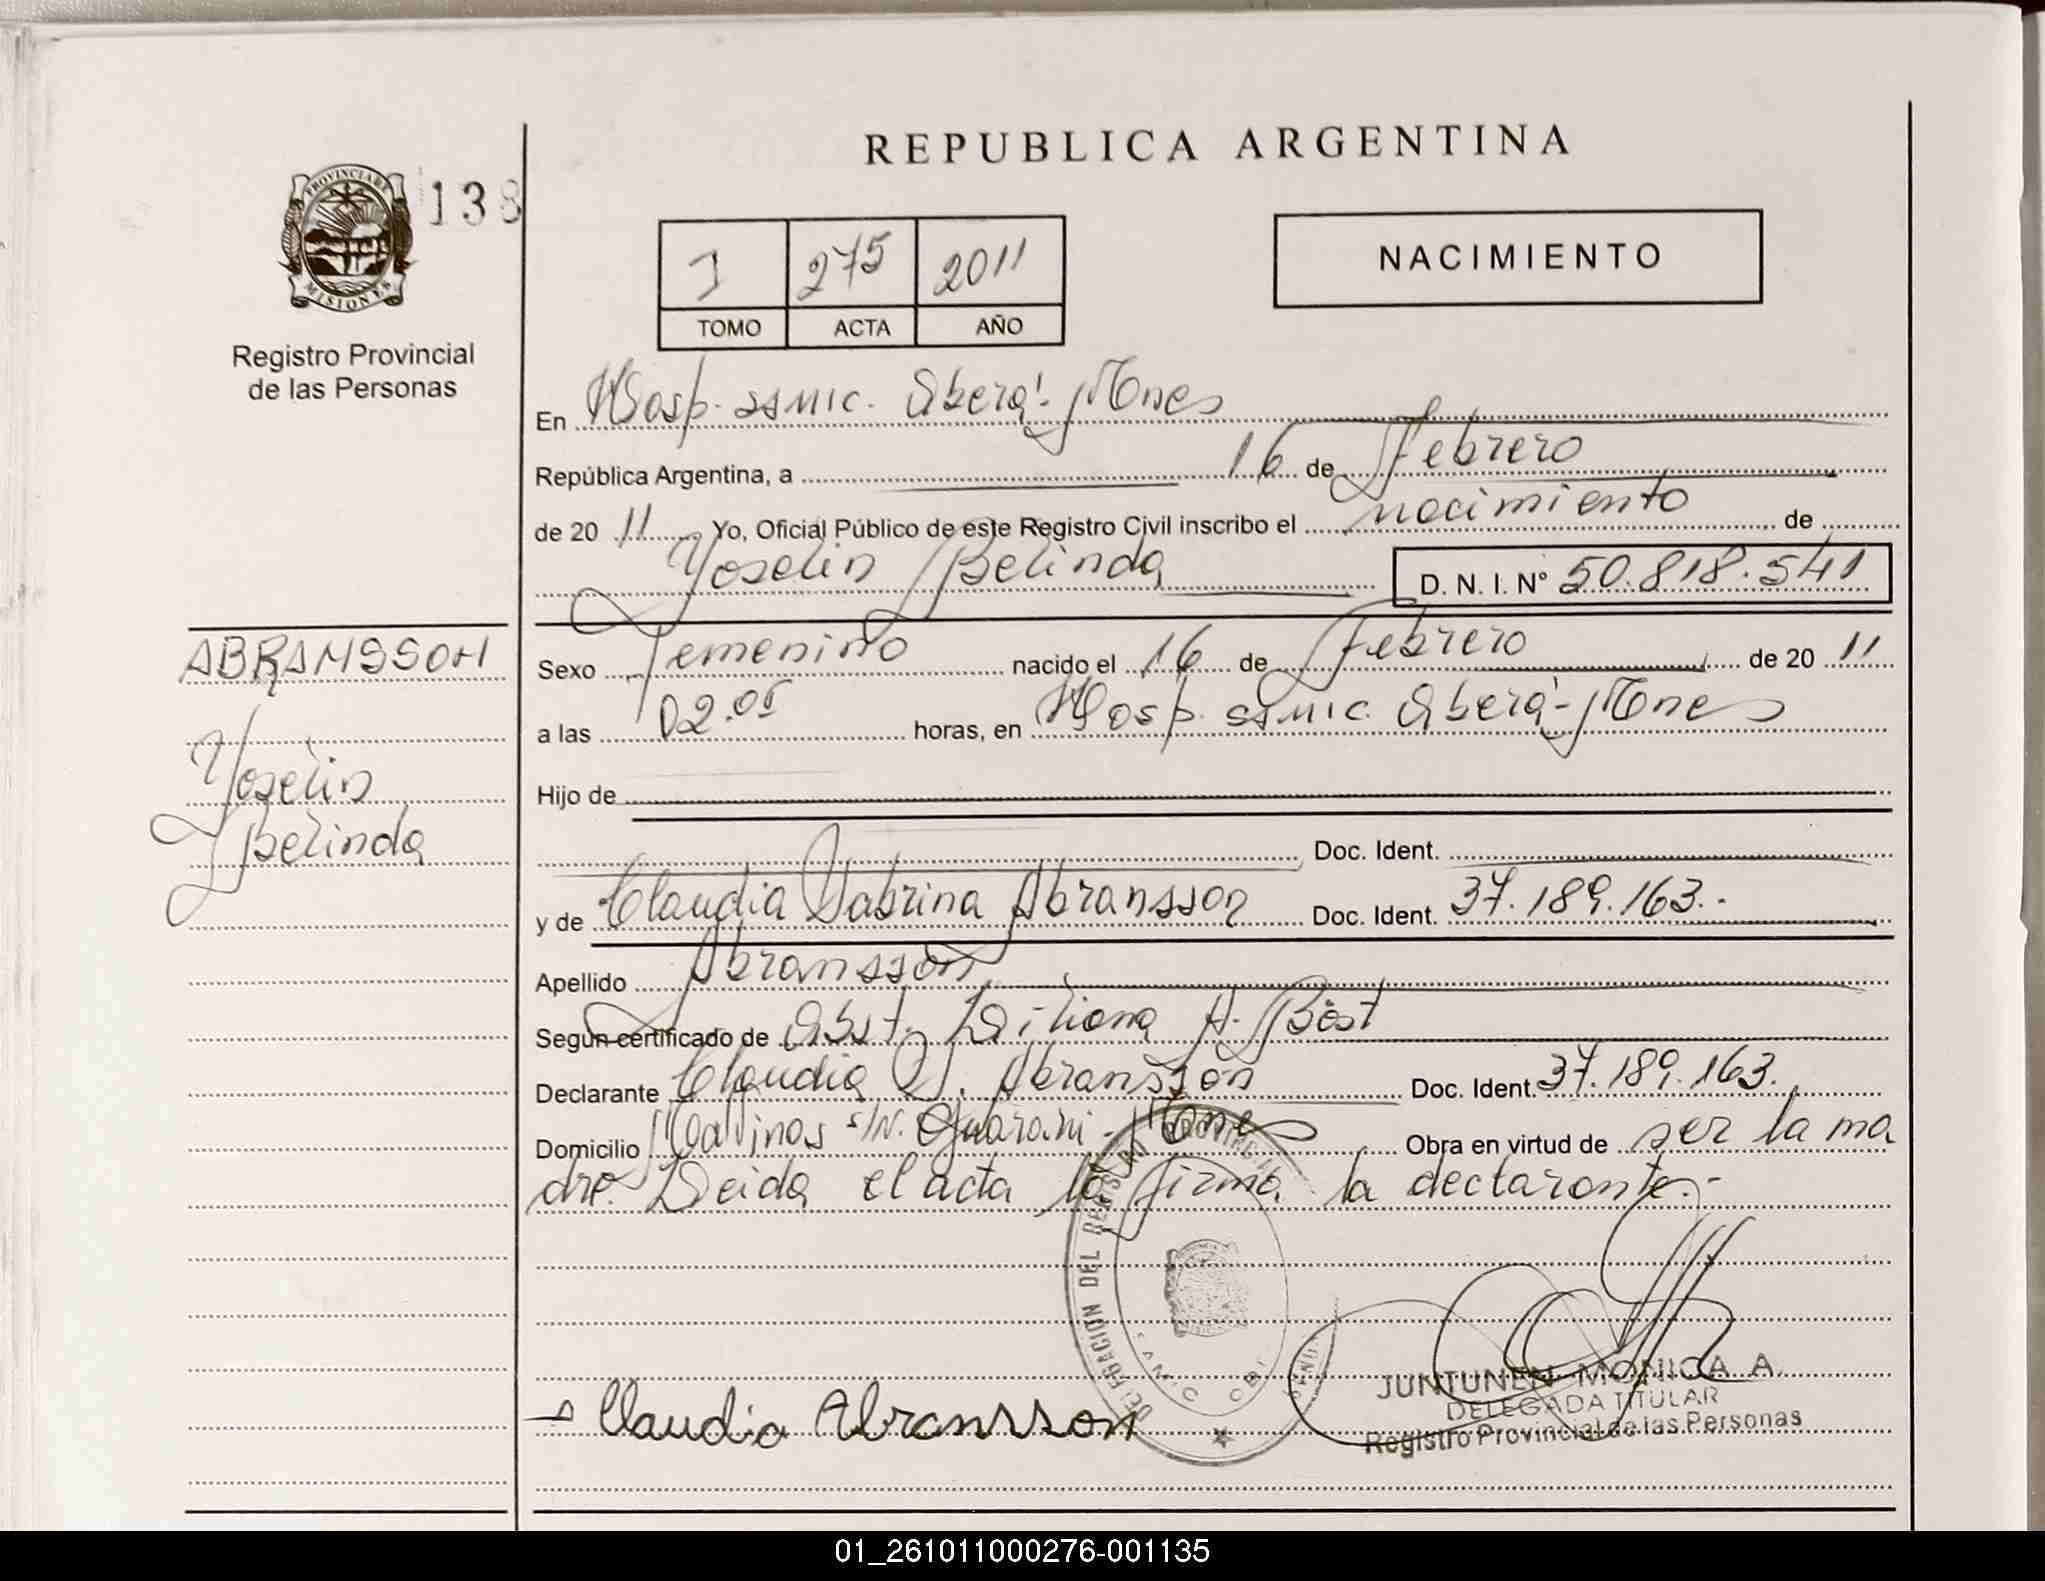 REPUBLICA ARGENTINA
PROVINCIA DE
MISIONES
138
Registro Provincial
de las Personas
I 275 2011
TOMO ACTA AÑO
NACIMIENTO
En Hosp. SAMIC. Oberá - Mnes
República Argentina, a 16 de Febrero
de 20 11 Yo, Oficial Público de este Registro Civil inscribo el nacimiento de
Yoselin Belinda D. N. I. Nº 50.818.541
ABRANSSON
Yoselin
Belinda
Sexo Femenino nacido el 16 de Febrero de 20 11
a las 02.05 horas, en Hosp. SAMIC. Oberá - Mnes
Hijo de
Doc. Ident.
y de Claudia Sabrina Abransson Doc. Ident. 37.189.163.-
Apellido Abransson
Según certificado de Obst. Liliana A. Best
Declarante Claudia S. Abransson Doc. Ident. 37.189.163.
Domicilio Malvinas s/N. Guaraní - Mnes Obra en virtud de ser la ma
dre. Leida el acta la firma la declarante.-
DELEGACION DEL REGISTRO PROVINCIAL
SAMIC
Claudia Abransson
JUNTUNEN MONICA A.
DELEGADA TITULAR
Registro Provincial de las Personas
01_261011000276-001135